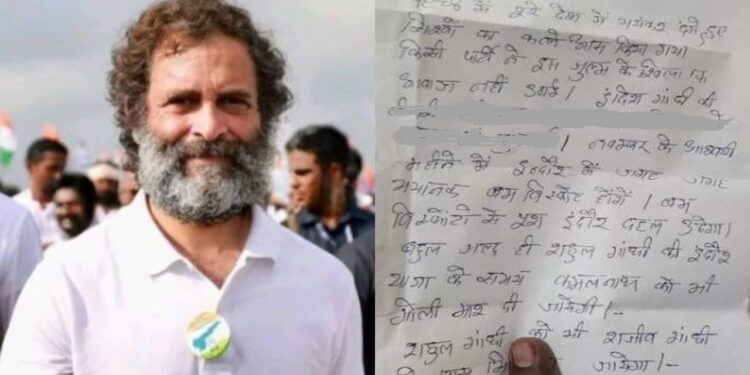 में पूरे देश में भयंकर दंगे हुए
सिखों का कत्ले आम किया गया
किसी पार्टी ने इस जुल्म के खिलाफ
आवाज नहीं उठाई। इंदिरा गांधी की
। नवम्बर के आखरी
महीने में इन्दौर में जगह जगह
भयानक बम विस्फोट होंगे। बम
विस्फोटों से पूरा इंदौर दहल उठेगा।
बहुत जल्द ही राहुल गांधी की इंदौर
यात्रा के समय कमलनाथ को भी
गोली मार दी जायेगी।-
राहुल गांधी को भी राजीव गांधी
के पास जायेगा।-